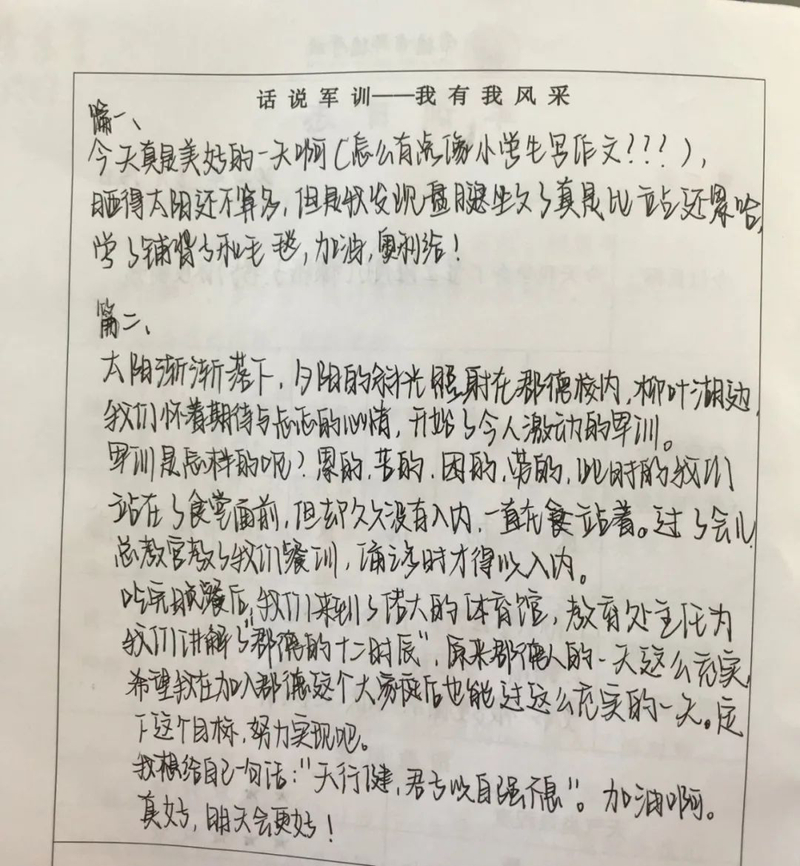 话说军训——我有我风采
篇一、
今天真是美好的一天啊(怎么有点像小学生写作文???),
晒得太阳还不算多,但是我发现盘腿坐久了真是比站还累哈,
学了铺褥了和毛毯,加油,奥利给!
篇二、
太阳渐渐落下,夕阳的余光照射在郡德校内,柳叶湖边,
我们怀着期待与忐忑的心情,开始了令人激动的军训。
军训是怎样的呢?累的,苦的,困的,劳的,此时的我们
站在了食堂面前,但却久久没有入内,一直在食站着。过了会儿
总教官教了我们餐训,痛诗时才得以入内。
吃完晚餐后,我们来到了偌大的体育馆,教育处主任为
我们讲解了"郡德的十二时辰",原来郡德人的一天这么充实,
希望我在加入郡德这个大家庭后也能过这么充实的一天。定
下这个目标,努力实现吧。
我想给自己一句话:"天行健,君子以自强不息"。加油啊。
真好,明天会更好!